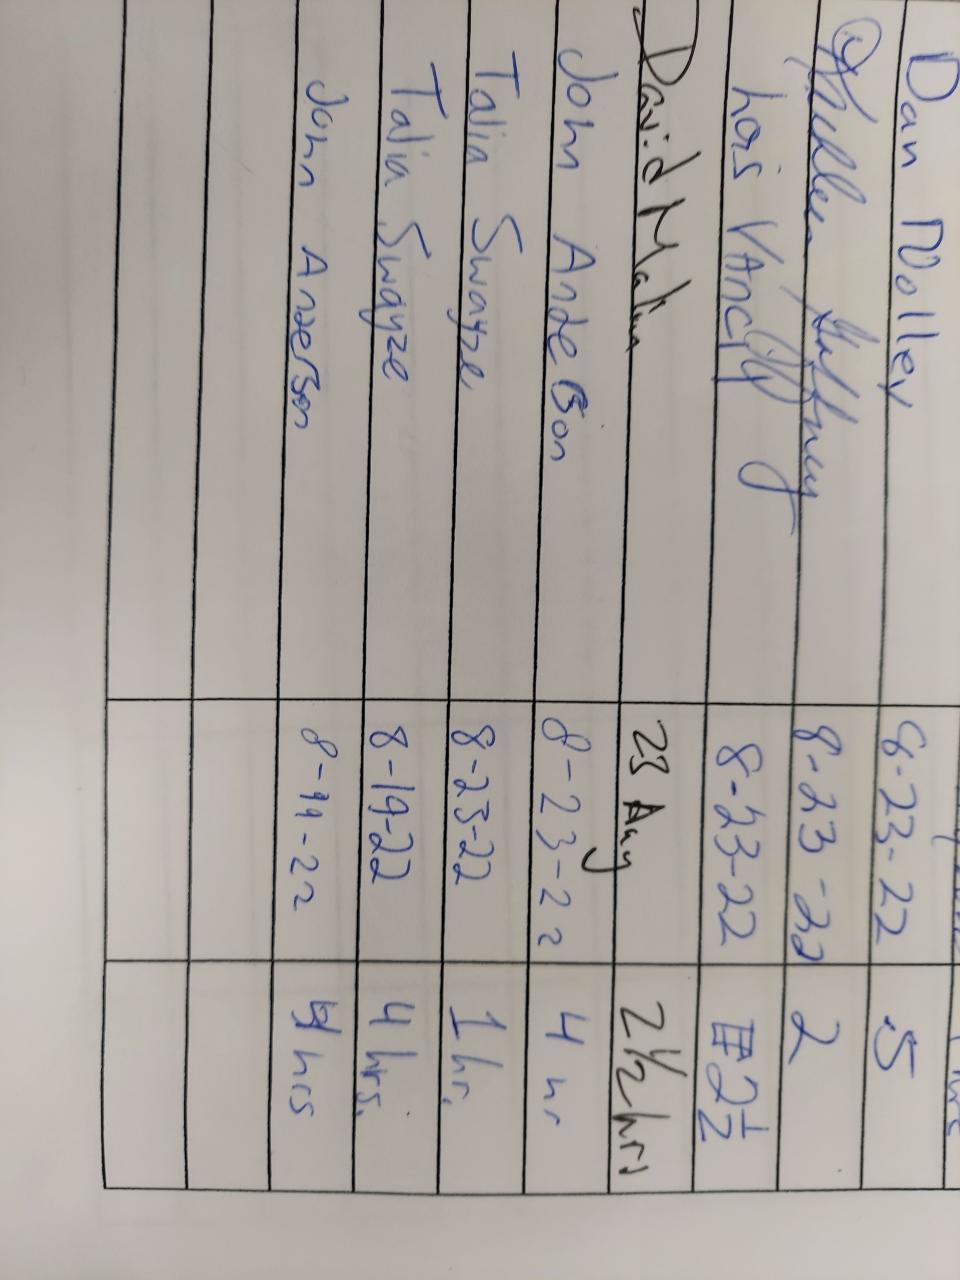 Dan Nolley 8-23-22 .5
Gaffney 8-23-22 2
Lois VAnclif 8-23-22 2 1/2
David Malina 23 Aug 2 1/2 hrs
John Anderson 8-23-22 4 hr
Talia Swayze 8-23-22 1 hr.
Talia Swayze 8-19-22 4 hrs.
John Anderson 8-19-22 4 hrs